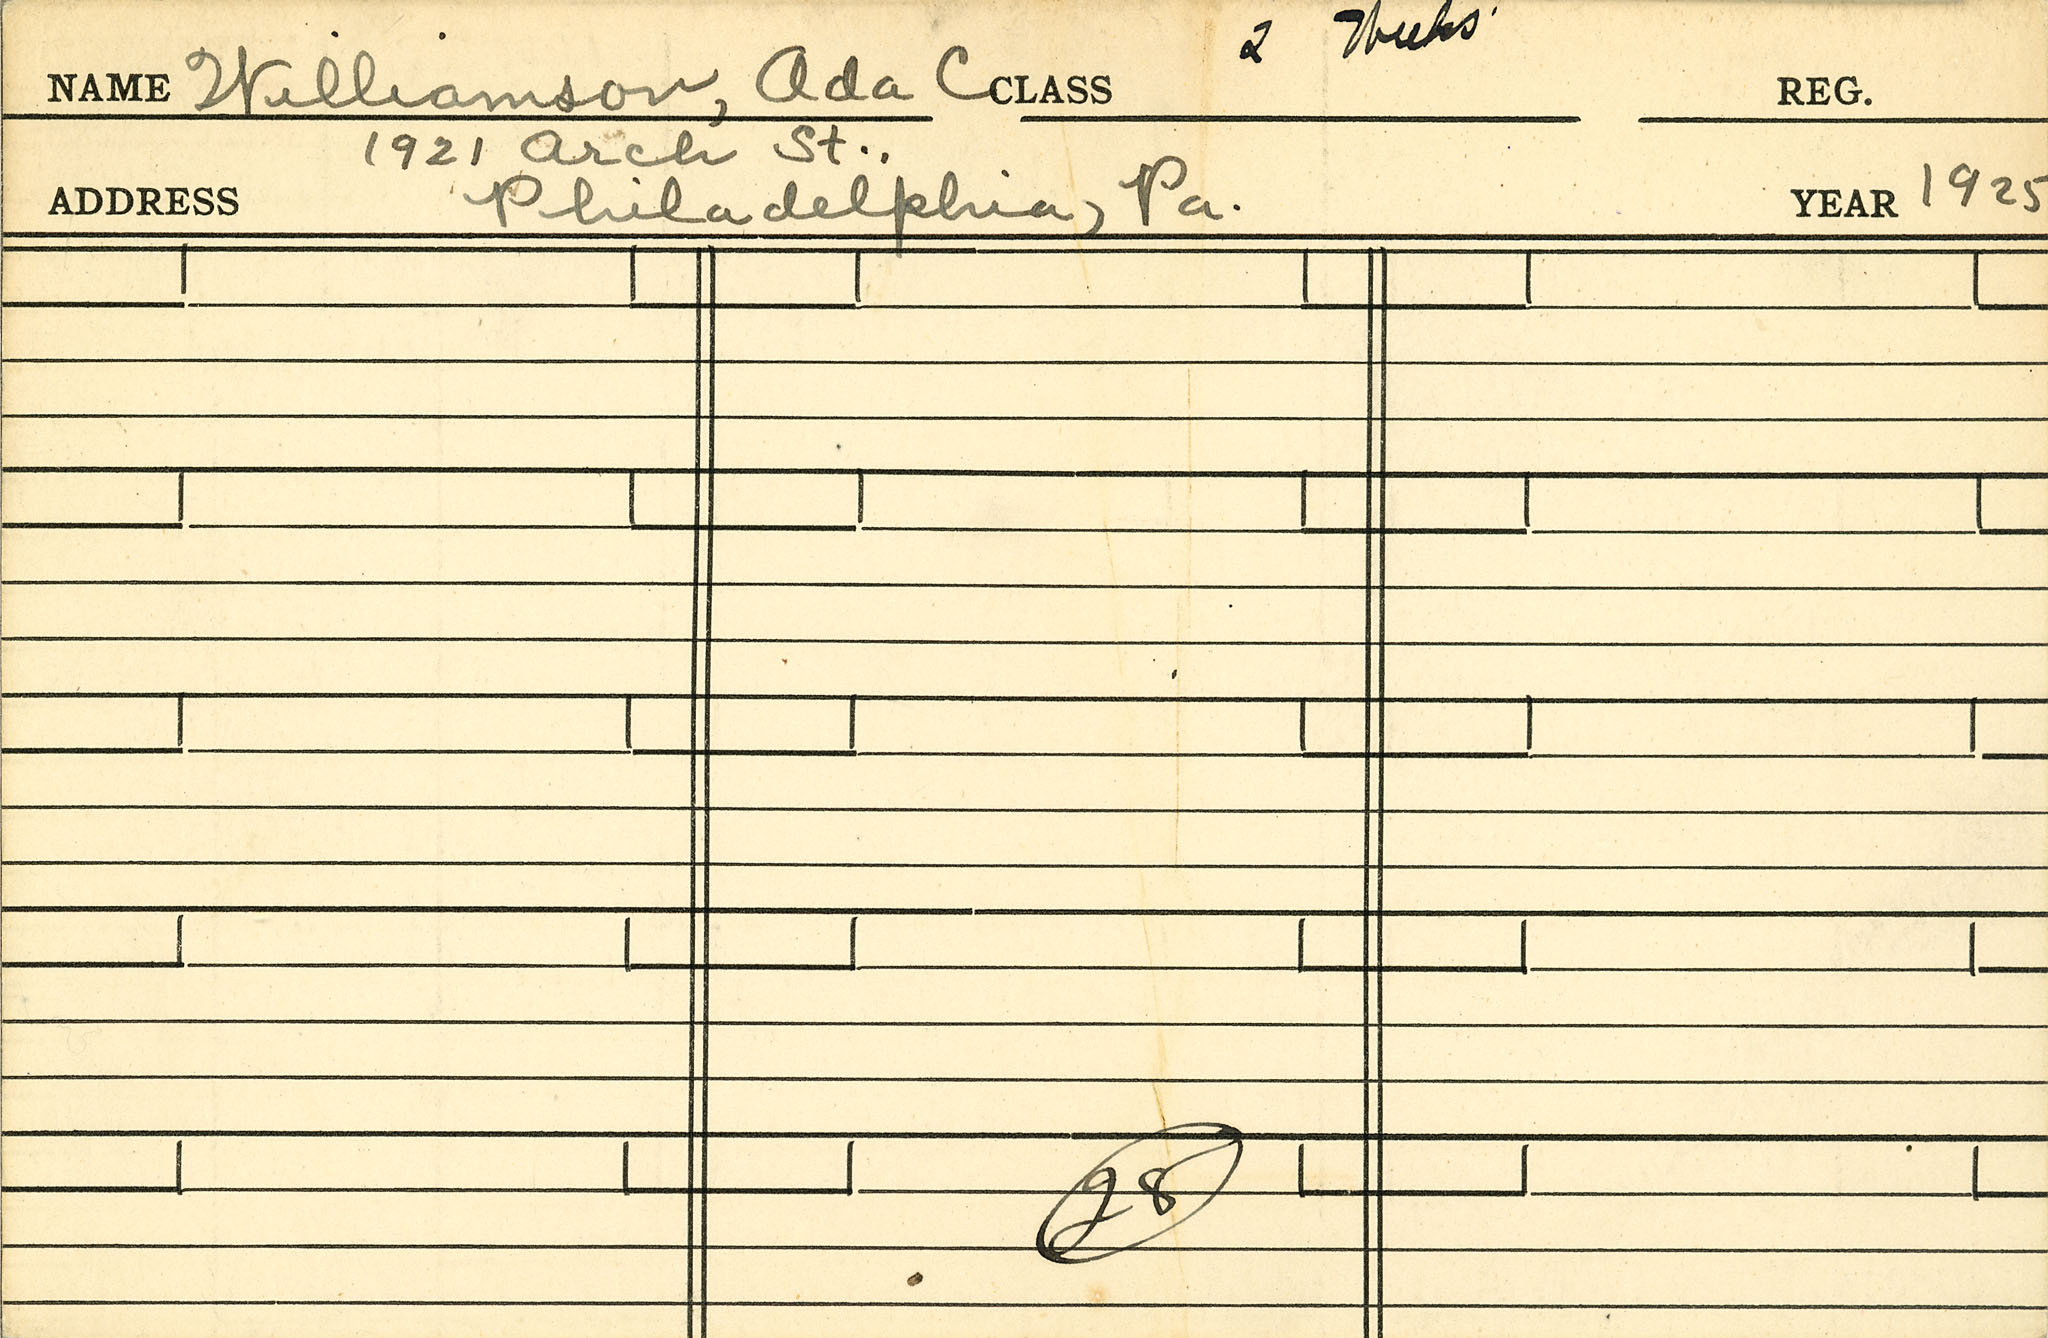 2 Weeks
NAME Williamson, Ada C CLASS REG.
1921 Arch St.,
ADDRESS Philadelphia, Pa. YEAR 1925
28